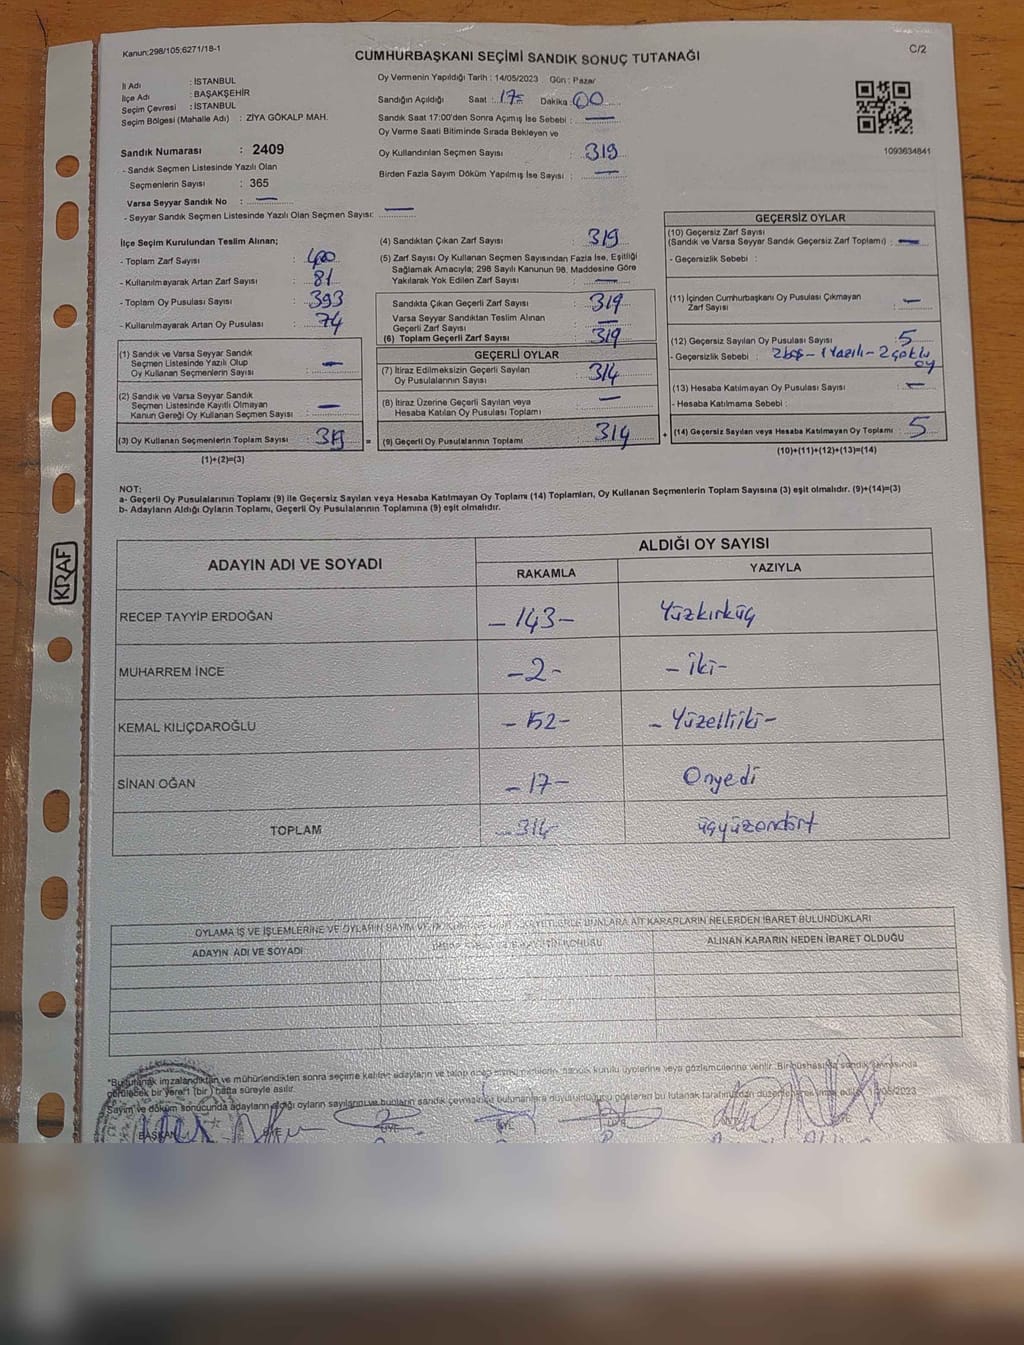 Kanun:298/105;6271/18-1
C/2
CUMHURBAŞKANI SEÇİMİ SANDIK SONUÇ TUTANAĞI
İl Adı : İSTANBUL
İlçe Adı : BAŞAKŞEHİR
Seçim Çevresi : İSTANBUL
Seçim Bölgesi (Mahalle Adı) : ZİYA GÖKALP MAH.
Sandık Numarası : 2409
- Sandık Seçmen Listesinde Yazılı Olan
Seçmenlerin Sayısı : 365
Varsa Seyyar Sandık No : —
- Seyyar Sandık Seçmen Listesinde Yazılı Olan Seçmen Sayısı: —
Oy Vermenin Yapıldığı Tarih : 14/05/2023 Gün : Pazar
Sandığın Açıldığı Saat : 17 Dakika : 00
Sandık Saat 17:00'den Sonra Açımış İse Sebebi : —
Oy Verme Saati Bitiminde Sırada Bekleyen ve
Oy Kullandırılan Seçmen Sayısı : 319
Birden Fazla Sayım Döküm Yapılmış İse Sayısı : —
1093634841
İlçe Seçim Kurulundan Teslim Alınan;
- Toplam Zarf Sayısı : 400
- Kullanılmayarak Artan Zarf Sayısı : 81
- Toplam Oy Pusulası Sayısı : 393
- Kullanılmayarak Artan Oy Pusulası : 74
(1) Sandık ve Varsa Seyyar Sandık
Seçmen Listesinde Yazılı Olup
Oy Kullanan Seçmenlerin Sayısı : —
(2) Sandık ve Varsa Seyyar Sandık
Seçmen Listesinde Kayıtlı Olmayan
Kanun Gereği Oy Kullanan Seçmen Sayısı : —
(3) Oy Kullanan Seçmenlerin Toplam Sayısı : 319
(1)+(2)=(3)
(4) Sandıktan Çıkan Zarf Sayısı : 319
(5) Zarf Sayısı Oy Kullanan Seçmen Sayısından Fazla İse, Eşitliği
Sağlamak Amacıyla; 298 Sayılı Kanunun 98. Maddesine Göre
Yakılarak Yok Edilen Zarf Sayısı : —
Sandıkta Çıkan Geçerli Zarf Sayısı : 319
Varsa Seyyar Sandıktan Teslim Alınan
Geçerli Zarf Sayısı : —
(6) Toplam Geçerli Zarf Sayısı : 319
GEÇERLİ OYLAR
(7) İtiraz Edilmeksizin Geçerli Sayılan
Oy Pusulalarının Sayısı : 314
(8) İtiraz Üzerine Geçerli Sayılan veya
Hesaba Katılan Oy Pusulası Toplamı : —
= (9) Geçerli Oy Pusulalarının Toplamı : 314
GEÇERSİZ OYLAR
(10) Geçersiz Zarf Sayısı
(Sandık ve Varsa Seyyar Sandık Geçersiz Zarf Toplamı) : —
- Geçersizlik Sebebi :
(11) İçinden Cumhurbaşkanı Oy Pusulası Çıkmayan
Zarf Sayısı : —
(12) Geçersiz Sayılan Oy Pusulası Sayısı : 5
- Geçersizlik Sebebi : 2 boş - 1 Yazılı - 2 çoklu
oy
(13) Hesaba Katılmayan Oy Pusulası Sayısı : —
- Hesaba Katılmama Sebebi :
+ (14) Geçersiz Sayılan veya Hesaba Katılmayan Oy Toplamı : 5
(10)+(11)+(12)+(13)=(14)
NOT:
a- Geçerli Oy Pusulalarının Toplamı (9) ile Geçersiz Sayılan veya Hesaba Katılmayan Oy Toplamı (14) Toplamları, Oy Kullanan Seçmenlerin Toplam Sayısına (3) eşit olmalıdır. (9)+(14)=(3)
b- Adayların Aldığı Oyların Toplamı, Geçerli Oy Pusulalarının Toplamına (9) eşit olmalıdır.
KRAF
ADAYIN ADI VE SOYADI
ALDIĞI OY SAYISI
RAKAMLA YAZIYLA
RECEP TAYYİP ERDOĞAN -143- Yüzkırküç
MUHARREM İNCE -2- -iki-
KEMAL KILIÇDAROĞLU -152- -Yüzelliiki-
SİNAN OĞAN -17- Onyedi
TOPLAM -314- üçyüzondört
OYLAMA İŞ VE İŞLEMLERİNE VE OYLARIN SAYIM VE BUNLARA AİT KARARLARIN NELERDEN İBARET BULUNDUKLARI
ADAYIN ADI VE SOYADI KONUSU ALINAN KARARIN NEDEN İBARET OLDUĞU
imzalandıktan ve mühürlendikten sonra seçime katılan adayların ve talep sandık kurulu üyelerine veya gözlemcilerine verilir. Bir nüshası da sandık çevresinde
bir yere 1 (bir) hafta süreyle asılır.
Sayım ve döküm sonucunda adayların aldığı oyların sayılarını ve bunların sandık çevresinde bulunanlara duyurulduğunu gösteren bu tutanak tarafımızdan
BAŞKAN ÜYE ÜYE ÜYE ÜYE